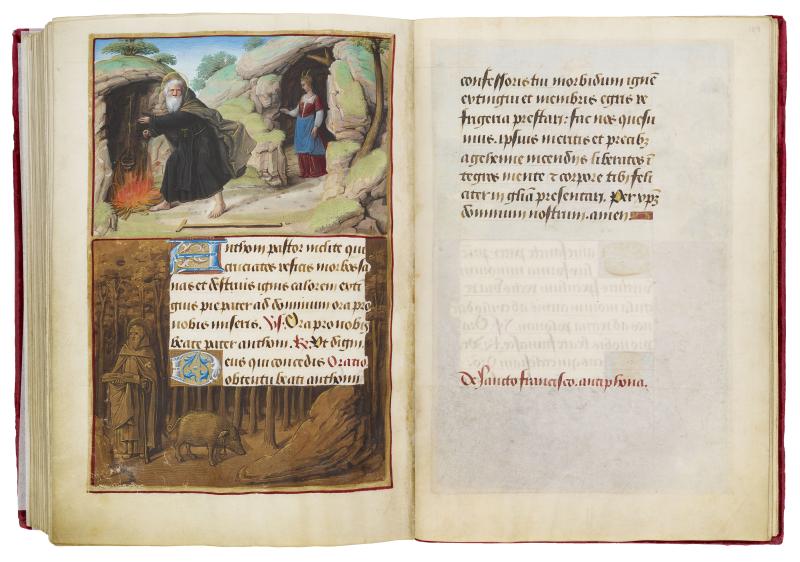 Anthoni pastor inclite qui
cruciatos reficis morbos sa
nas et destruis ignis calorem exti
guis pie pater ad dominum ora pro
nobis miseris. Vs. Ora pro nobis
beate pater anthoni. R. Vt digni
Deus qui concedis Oratio
obtentu beati anthonii
confessoris tui morbidum ignē
extingui et membris egris re
frigeria prestari: fac nos quesu
mus. ipsius meritis et precibꝫ
a gehenne incendiis liberatos ī
tegros mente ⁊ corpore tibi feli
citer in gl̄ia presentari. Per xp̄ꝫ
dominum nostrum. amen
De sancto francisco. antiphona.